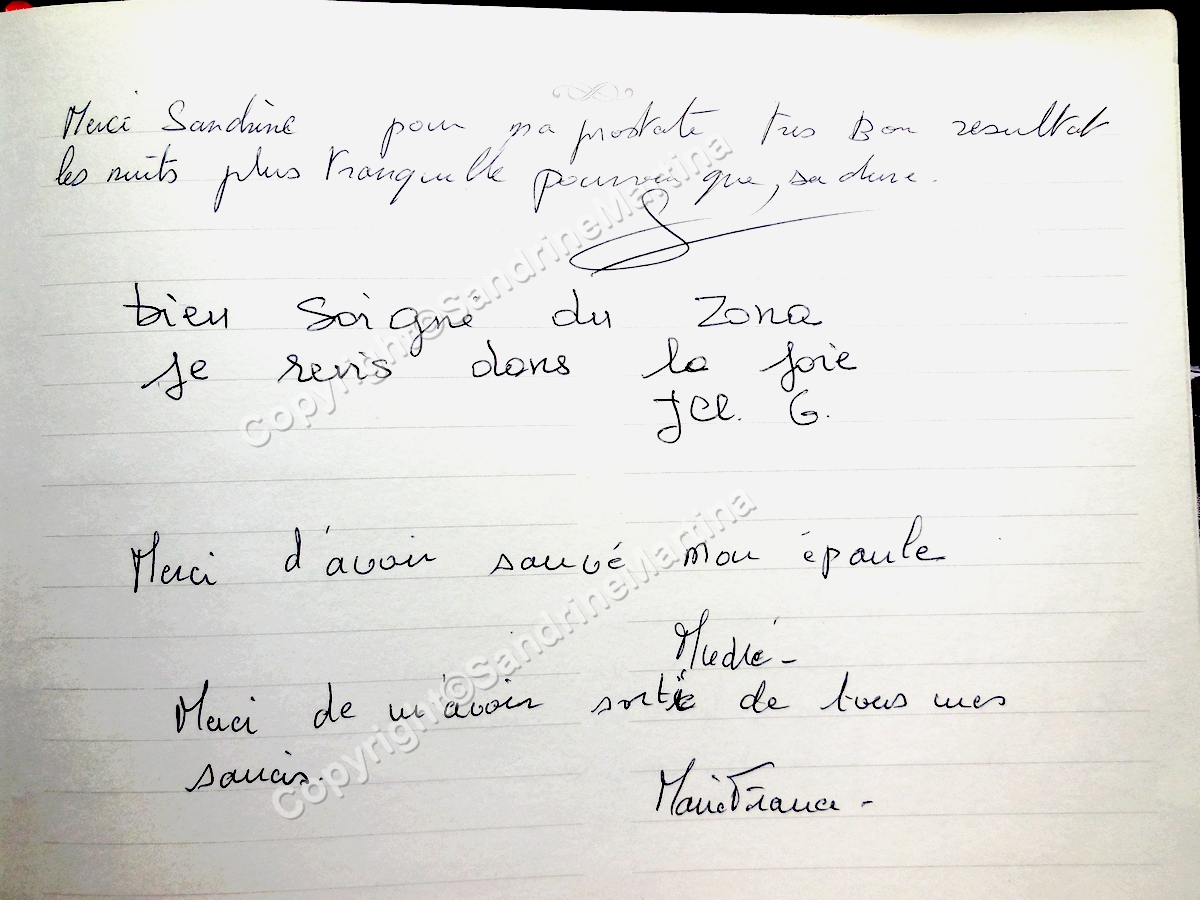 Merci Sandrine pour ma prostate tres Bon resultat
les nuits plus tranquille pourvu que, sa dure.
bien Soigné du Zona
je revis dans la joie
JCl. G.
Merci d'avoir sauvé mon épaule
Merci de m'avoir sortie de tous mes
soucis.
Marie France -
Copyright©SandrineMartina
Copyright©SandrineMartina